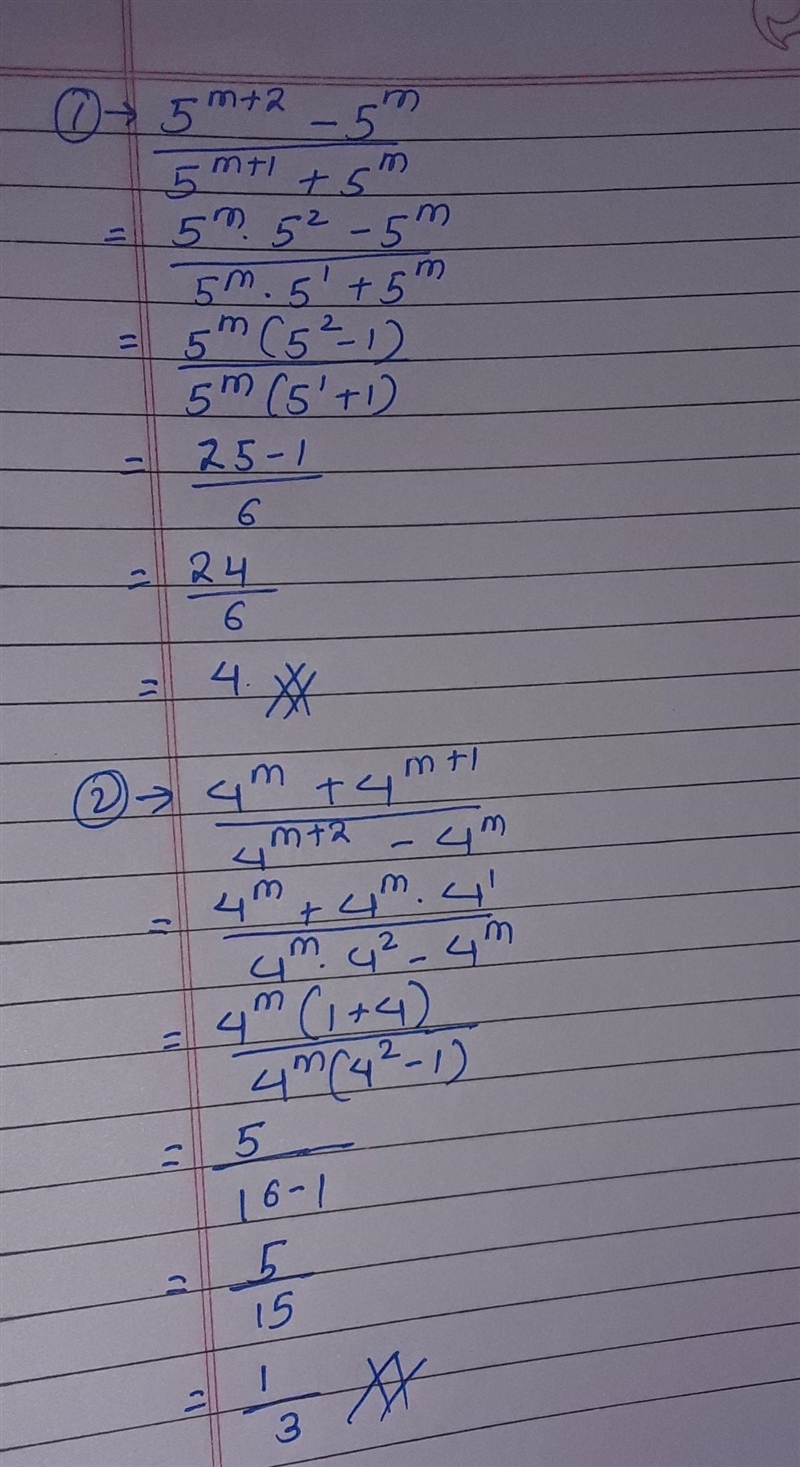 ① → 5^{m+2} - 5^m
5^{m+1} + 5^m
= 5^m · 5^2 - 5^m
5^m · 5^1 + 5^m
= 5^m (5^2 - 1)
5^m (5^1 + 1)
= 25 - 1
6
= 24
6
= 4.
② → 4^m + 4^{m+1}
4^{m+2} - 4^m
= 4^m + 4^m · 4^1
4^m · 4^2 - 4^m
= 4^m (1 + 4)
4^m (4^2 - 1)
= 5
16 - 1
= 5
15
= 1
3